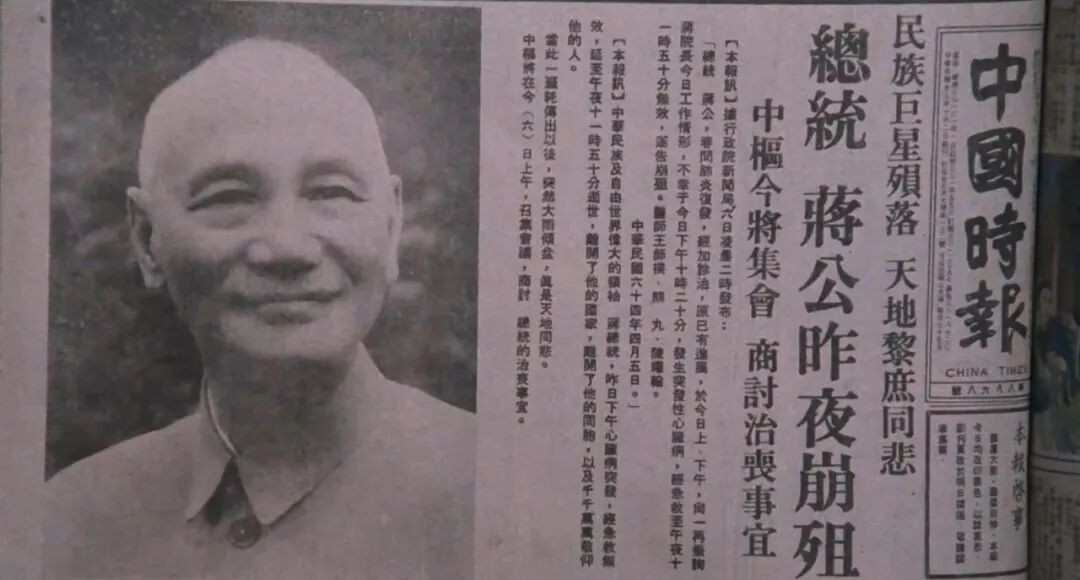 中國時報
CHINA TIMES
本報啓事
民族巨星殞落 天地黎庶同悲
總統 蔣公昨夜崩殂
中樞今將集會 商討治喪事宜
【本報訊】據行政院新聞局六日凌晨二時發布：
「總統 蔣公，春間肺炎復發，經加診治，原已有進展，於今日上、下午，尚一再垂詢
蔣院長今日工作情形，不幸于今日下午十時二十分，發生突發性心臟病，經急救至午夜十
一時五十分無效，遂告崩殂。醫師王師揆、熊 丸、陳耀翰。
中華民國六十四年四月五日。」
【本報訊】中華民族及自由世界偉大的領袖 蔣總統，昨日下午心臟病突發，經急救無
效，延至午夜十一時五十分逝世，離開了他的國家，離開了他的同胞，以及千千萬萬敬仰
他的人。
當此一噩耗傳出以後，突然大雨傾盆，真是天地同悲。
中樞將在今（六）日上午，召集會議，商討 總統的治喪事宜。